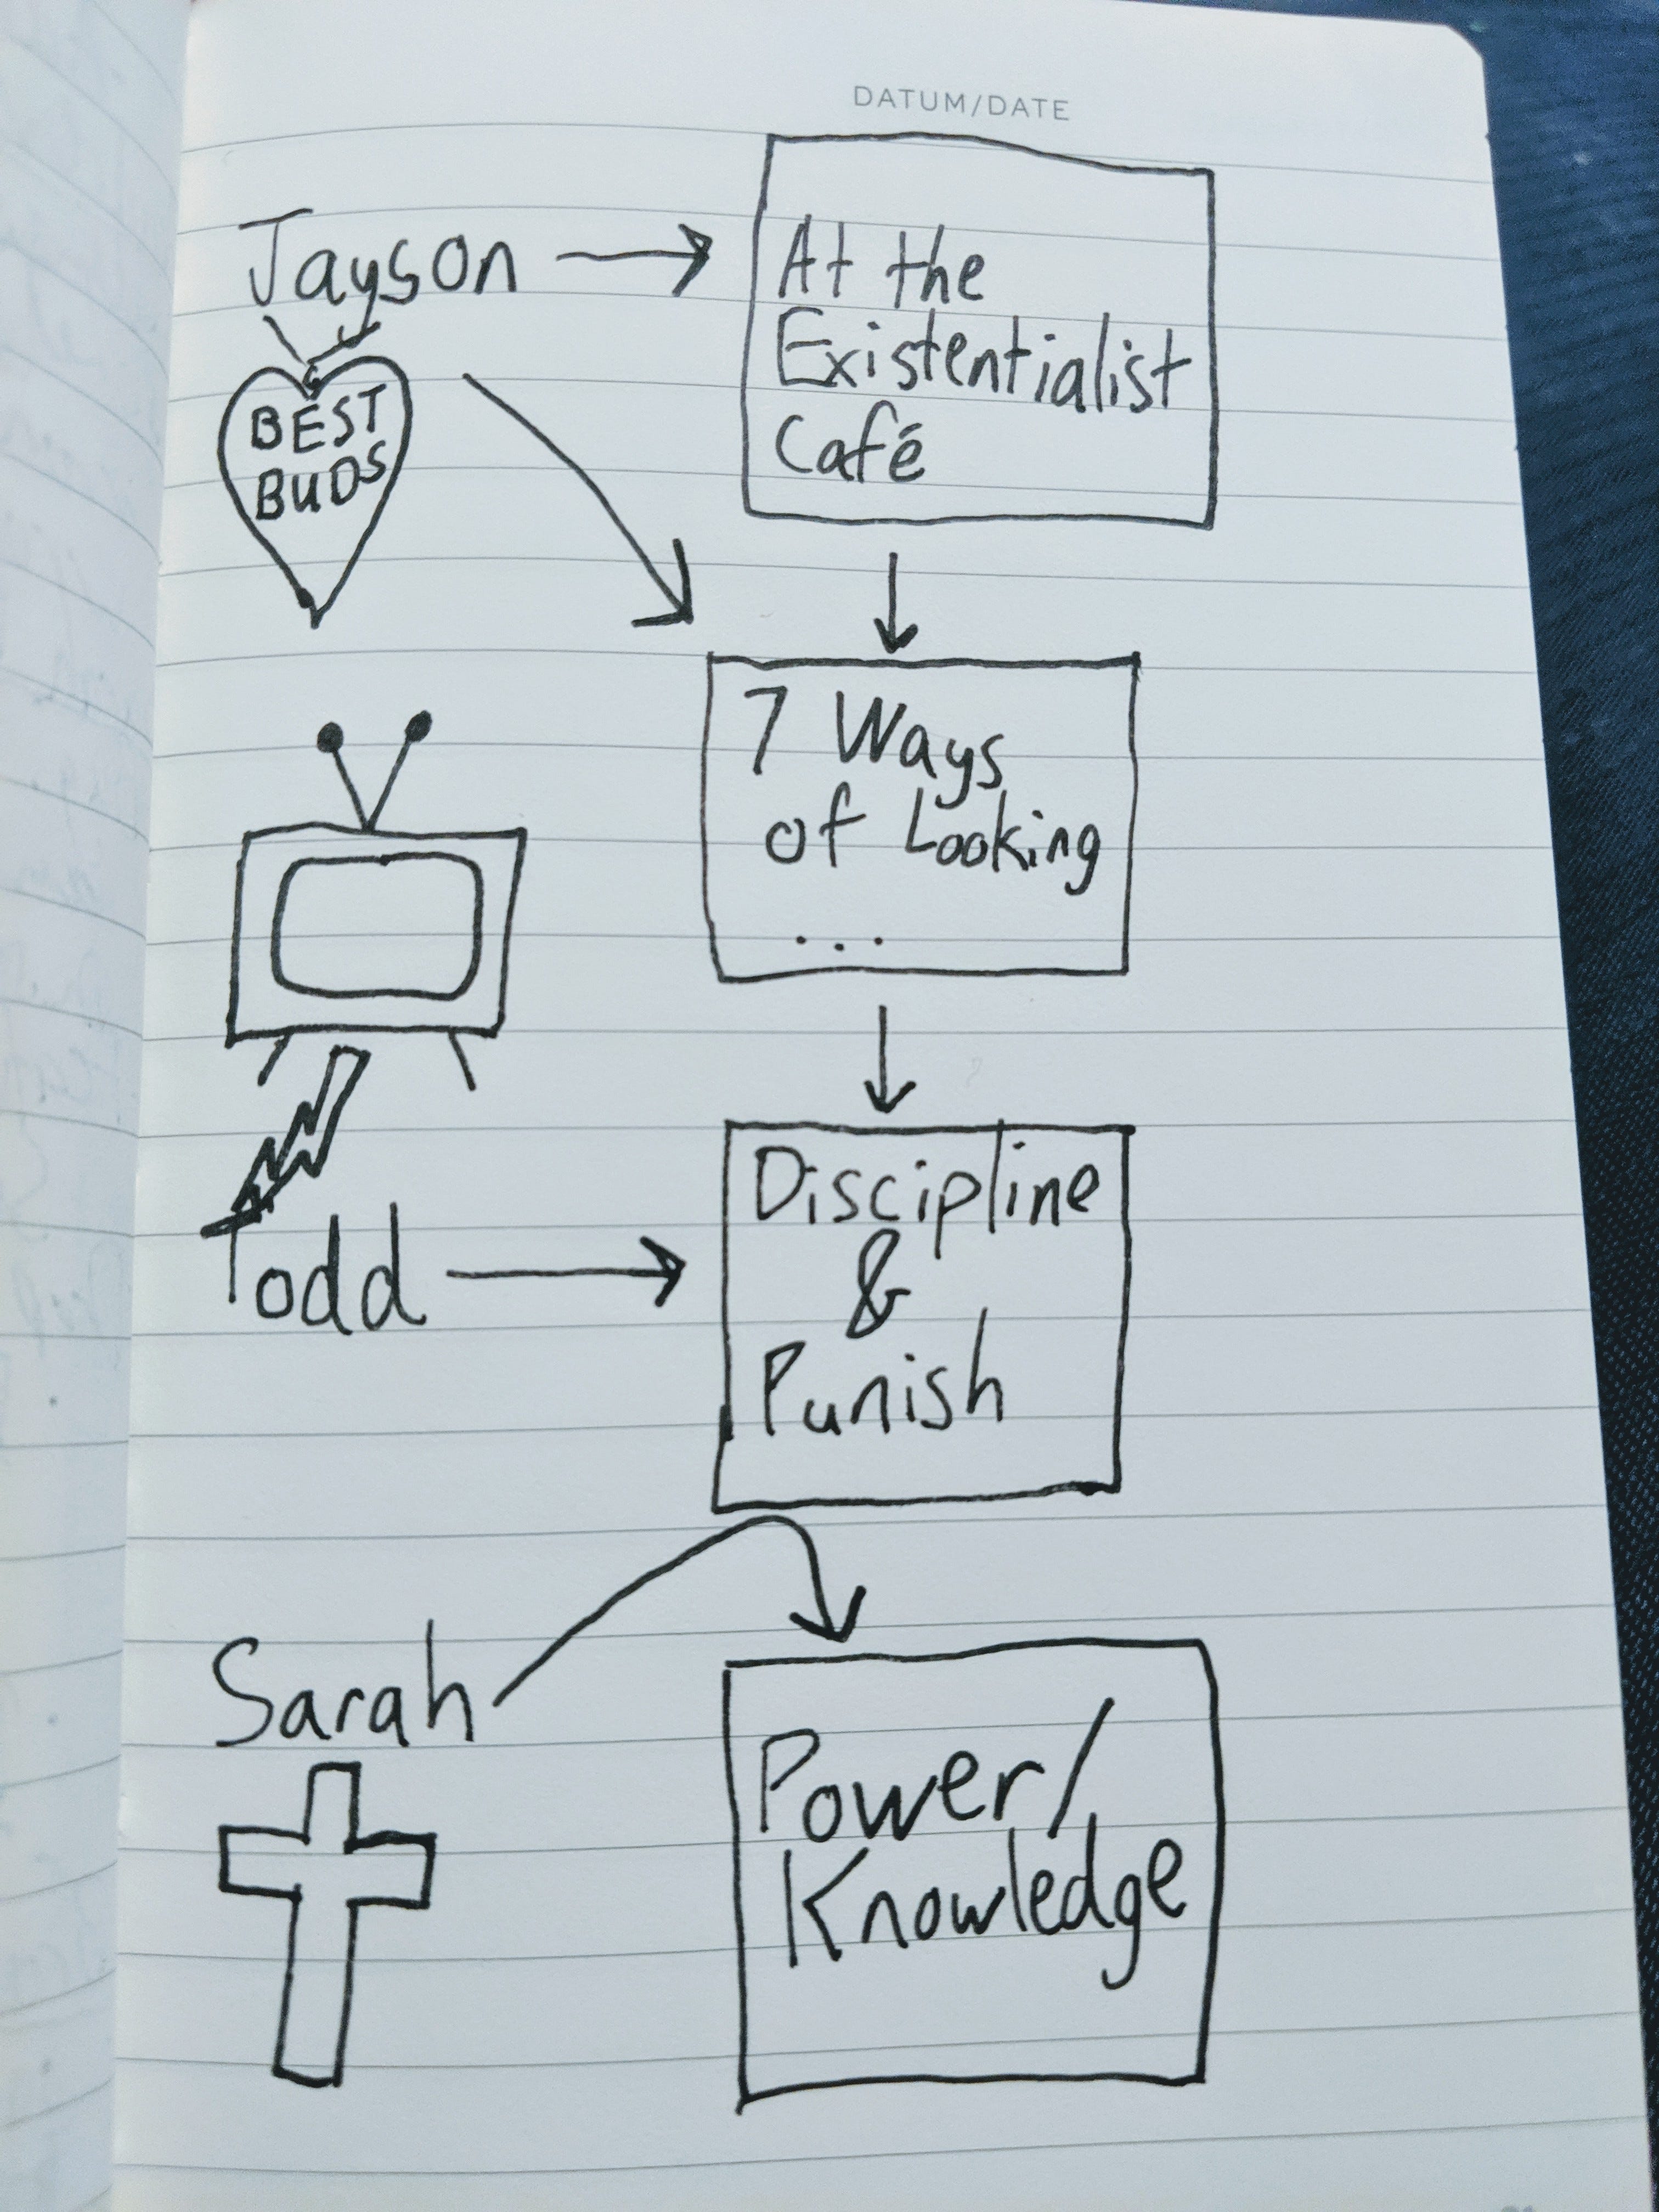 DATUM/DATE
Jayson
At the
Existentialist
Café
BEST
BUDS
7 Ways
of Looking
...
Discipline
&
Punish
Todd
Sarah
Power/
Knowledge